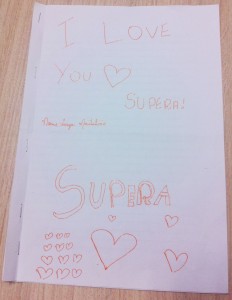 I LOVE
YOU
SUPERA!
SUPERA